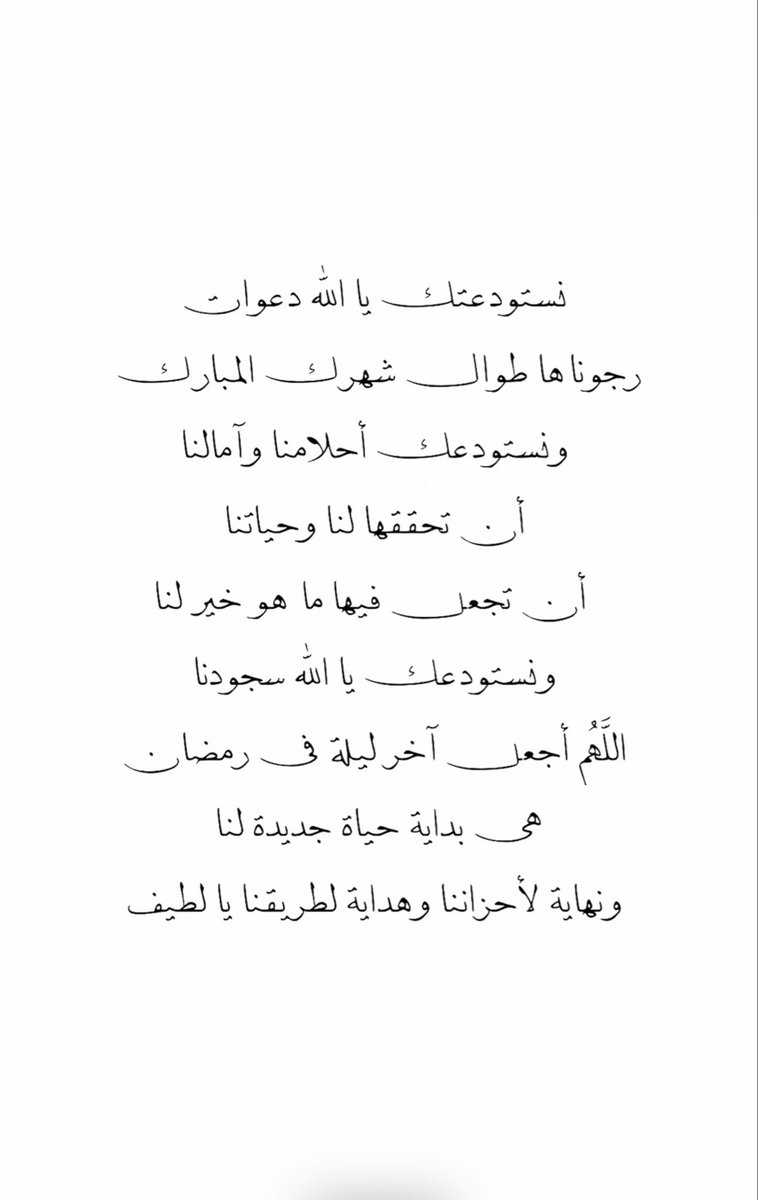 نستودعتك يا الله دعوات
رجوناها طوال شهرك المبارك
ونستودعك أحلامنا وآمالنا
أن تحققها لنا وحياتنا
أن تجعل فيها ما هو خير لنا
ونستودعك يا الله سجودنا
اللَّهُم أجعل آخر ليلة فى رمضان
هى بداية حياة جديدة لنا
ونهاية لأحزاننا وهداية لطريقنا يا لطيف